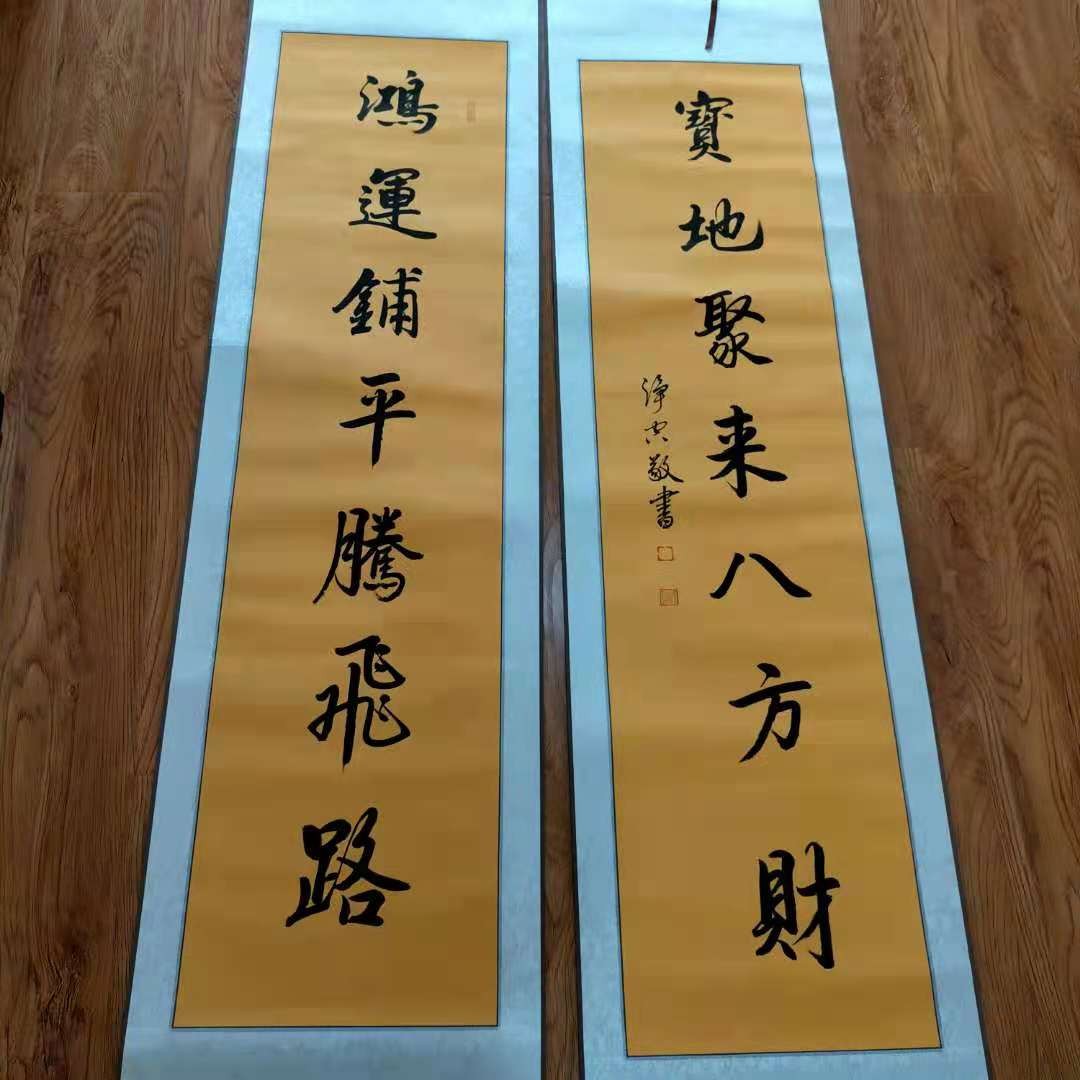 鴻運鋪平騰飛路
寶地聚来八方財
淨空敬書